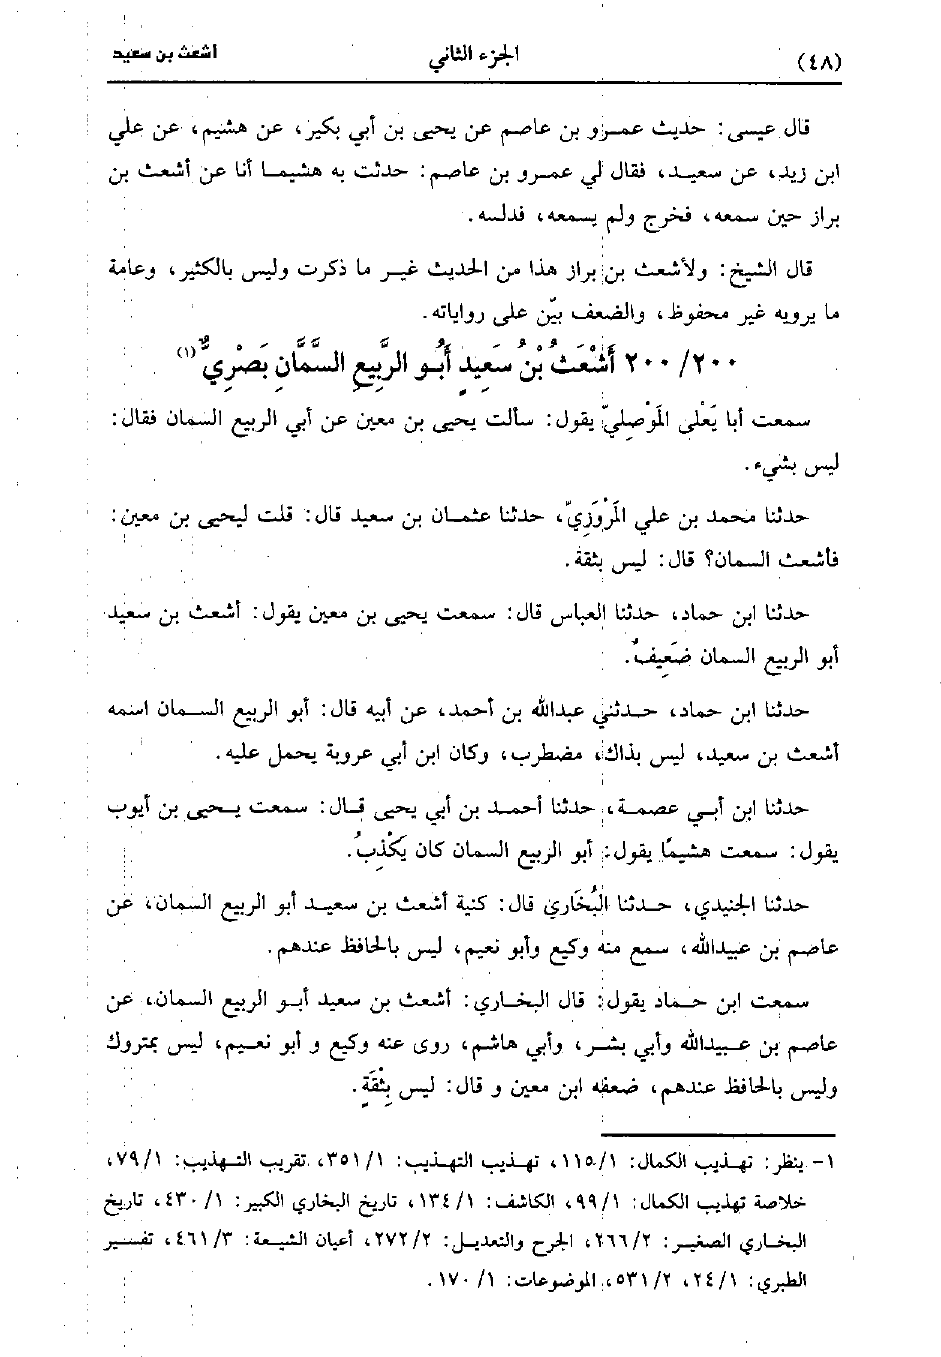 (٤٨) الجزء الثاني اشعث بن سعيد
قال عيسى: حديث عمرو بن عاصم عن يحيى بن أبي بكير، عن هشيم، عن علي
ابن زيد، عن سعيد، فقال لي عمرو بن عاصم: حدثت به هشيما أنا عن أشعث بن
براز حين سمعه، فخرج ولم يسمعه، فدلسه.
قال الشيخ: ولأشعث بن براز هذا من الحديث غير ما ذكرت وليس بالكثير، وعامة
ما يرويه غير محفوظ، والضعف بيّن على رواياته.
٢٠٠/٢٠٠ أَشْعَثُ بْنُ سَعِيدٍ أَبُو الرَّبِيعِ السَّمَّانِ بَصْرِيٌّ(١)
سمعت أبا يَعْلى المَوْصِليّ يقول: سألت يحيى بن معين عن أبي الربيع السمان فقال:
ليس بشيء.
حدثنا محمد بن علي المَرْوَزِيّ، حدثنا عثمان بن سعيد قال: قلت ليحيى بن معين:
فأشعث السمان؟ قال: ليس بثقة.
حدثنا ابن حماد، حدثنا العباس قال: سمعت يحيى بن معين يقول: أشعث بن سعيد
أبو الربيع السمان ضَعِيفٌ.
حدثنا ابن حماد، حدثني عبدالله بن أحمد، عن أبيه قال: أبو الربيع السمان اسمه
أشعث بن سعيد، ليس بذاك، مضطرب، وكان ابن أبي عروبة يحمل عليه.
حدثنا ابن أبي عصمة، حدثنا أحمد بن أبي يحيى قال: سمعت يحيى بن أيوب
يقول: سمعت هشيمًا يقول: أبو الربيع السمان كان يَكْذِبُ.
حدثنا الجنيدي، حدثنا البُخَاري قال: كنية أشعث بن سعيد أبو الربيع السمان، عن
عاصم بن عبيدالله، سمع منه وكيع وأبو نعيم، ليس بالحافظ عندهم.
سمعت ابن حماد يقول: قال البخاري: أشعث بن سعيد أبو الربيع السمان، عن
عاصم بن عبيدالله وأبي بشر، وأبي هاشم، روى عنه وكيع و أبو نعيم، ليس بمتروك
وليس بالحافظ عندهم، ضعفه ابن معين و قال: ليس بِثِقَةٍ.
١- ينظر: تهذيب الكمال: ١١٥/١، تهذيب التهذيب: ٣٥١/١، تقريب التهذيب: ٧٩/١،
خلاصة تهذيب الكمال: ٩٩/١، الكاشف: ١٣٤/١، تاريخ البخاري الكبير: ٤٣٠/١، تاريخ
البخاري الصغير: ٢٦٦/٢، الجرح والتعديل: ٢٧٢/٢، أعيان الشيعة: ٤٦١/٣، تفسير
الطبري: ٢٤/١، ٥٣١/٢، الموضوعات: ١٧٠/١.